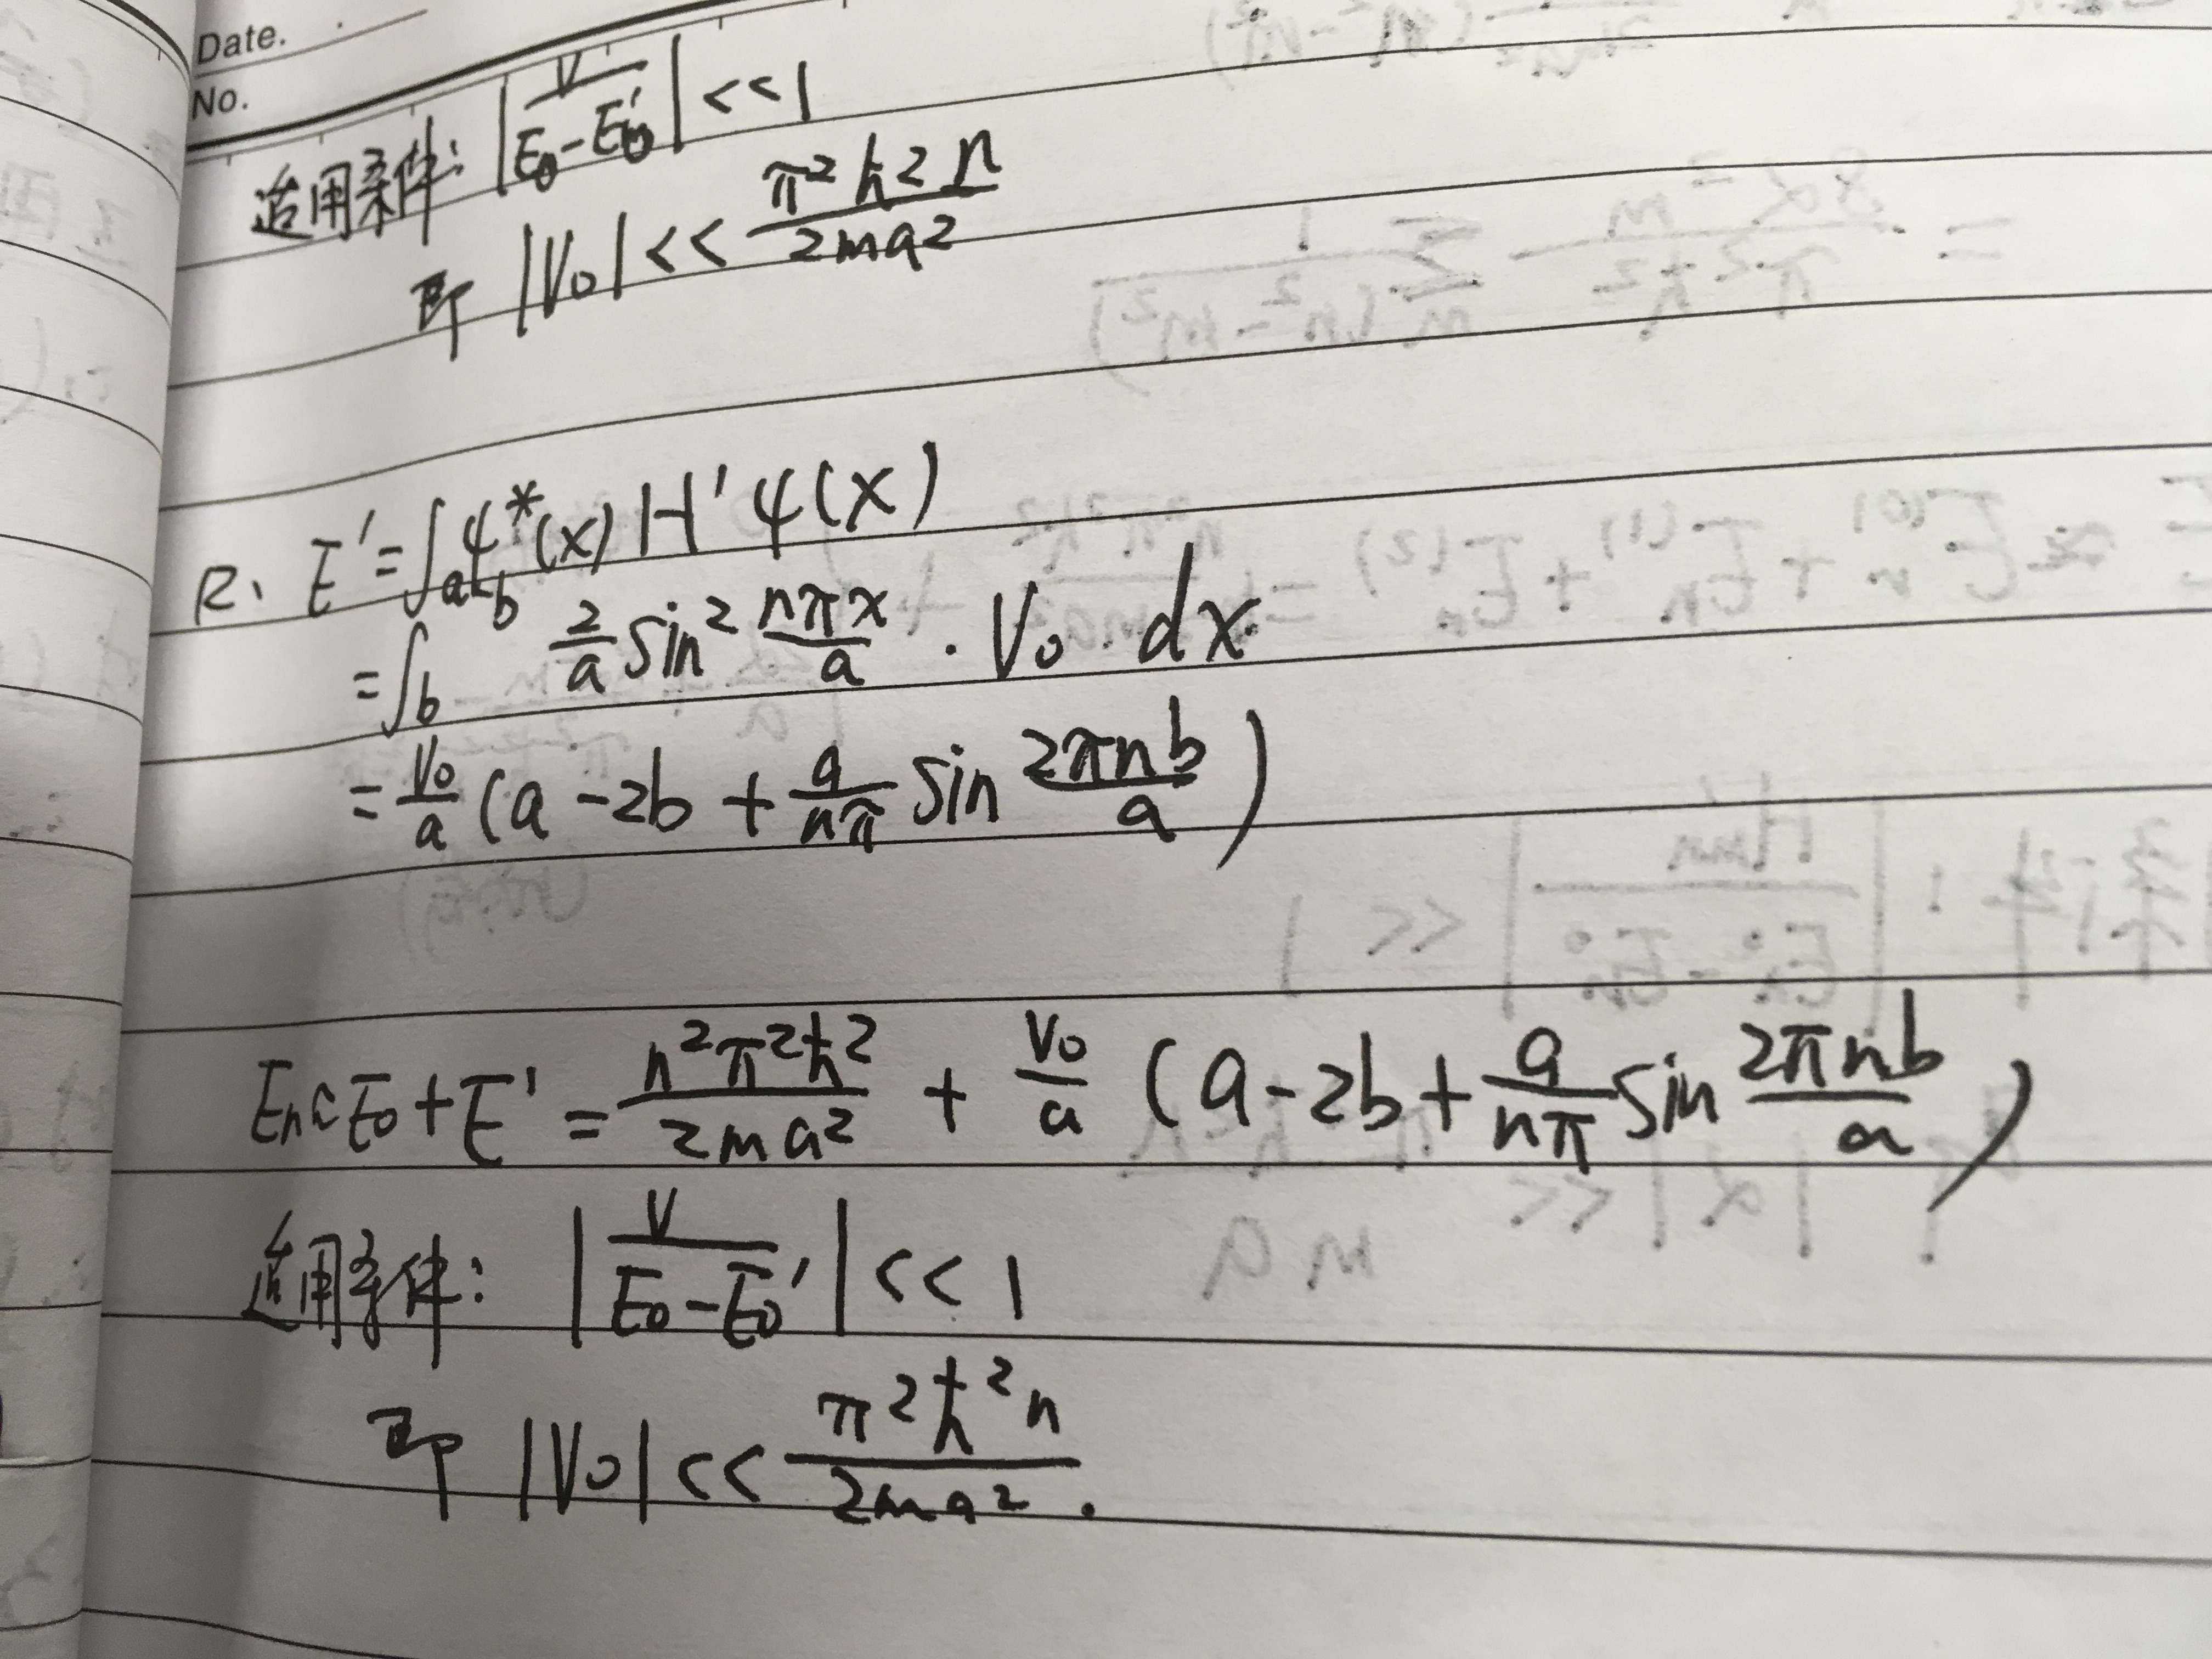 Date.
No.
适用条件: |V/(E₀-E₀′)| <<1
即 |V₀| << π²ħ²n/2ma²
2、 E′=∫ψ*(x)H′ψ(x)
=∫_b^{a-b} 2/a sin² nπx/a · V₀ dx
= V₀/a (a-2b + a/nπ sin 2πnb/a)
Eₙ≈E₀+E′ = n²π²ħ²/2ma² + V₀/a (a-2b+ a/nπ sin 2πnb/a)
适用条件: |V/(E₀-E₀′)| <<1
即 |V₀| << π²ħ²n/2ma².